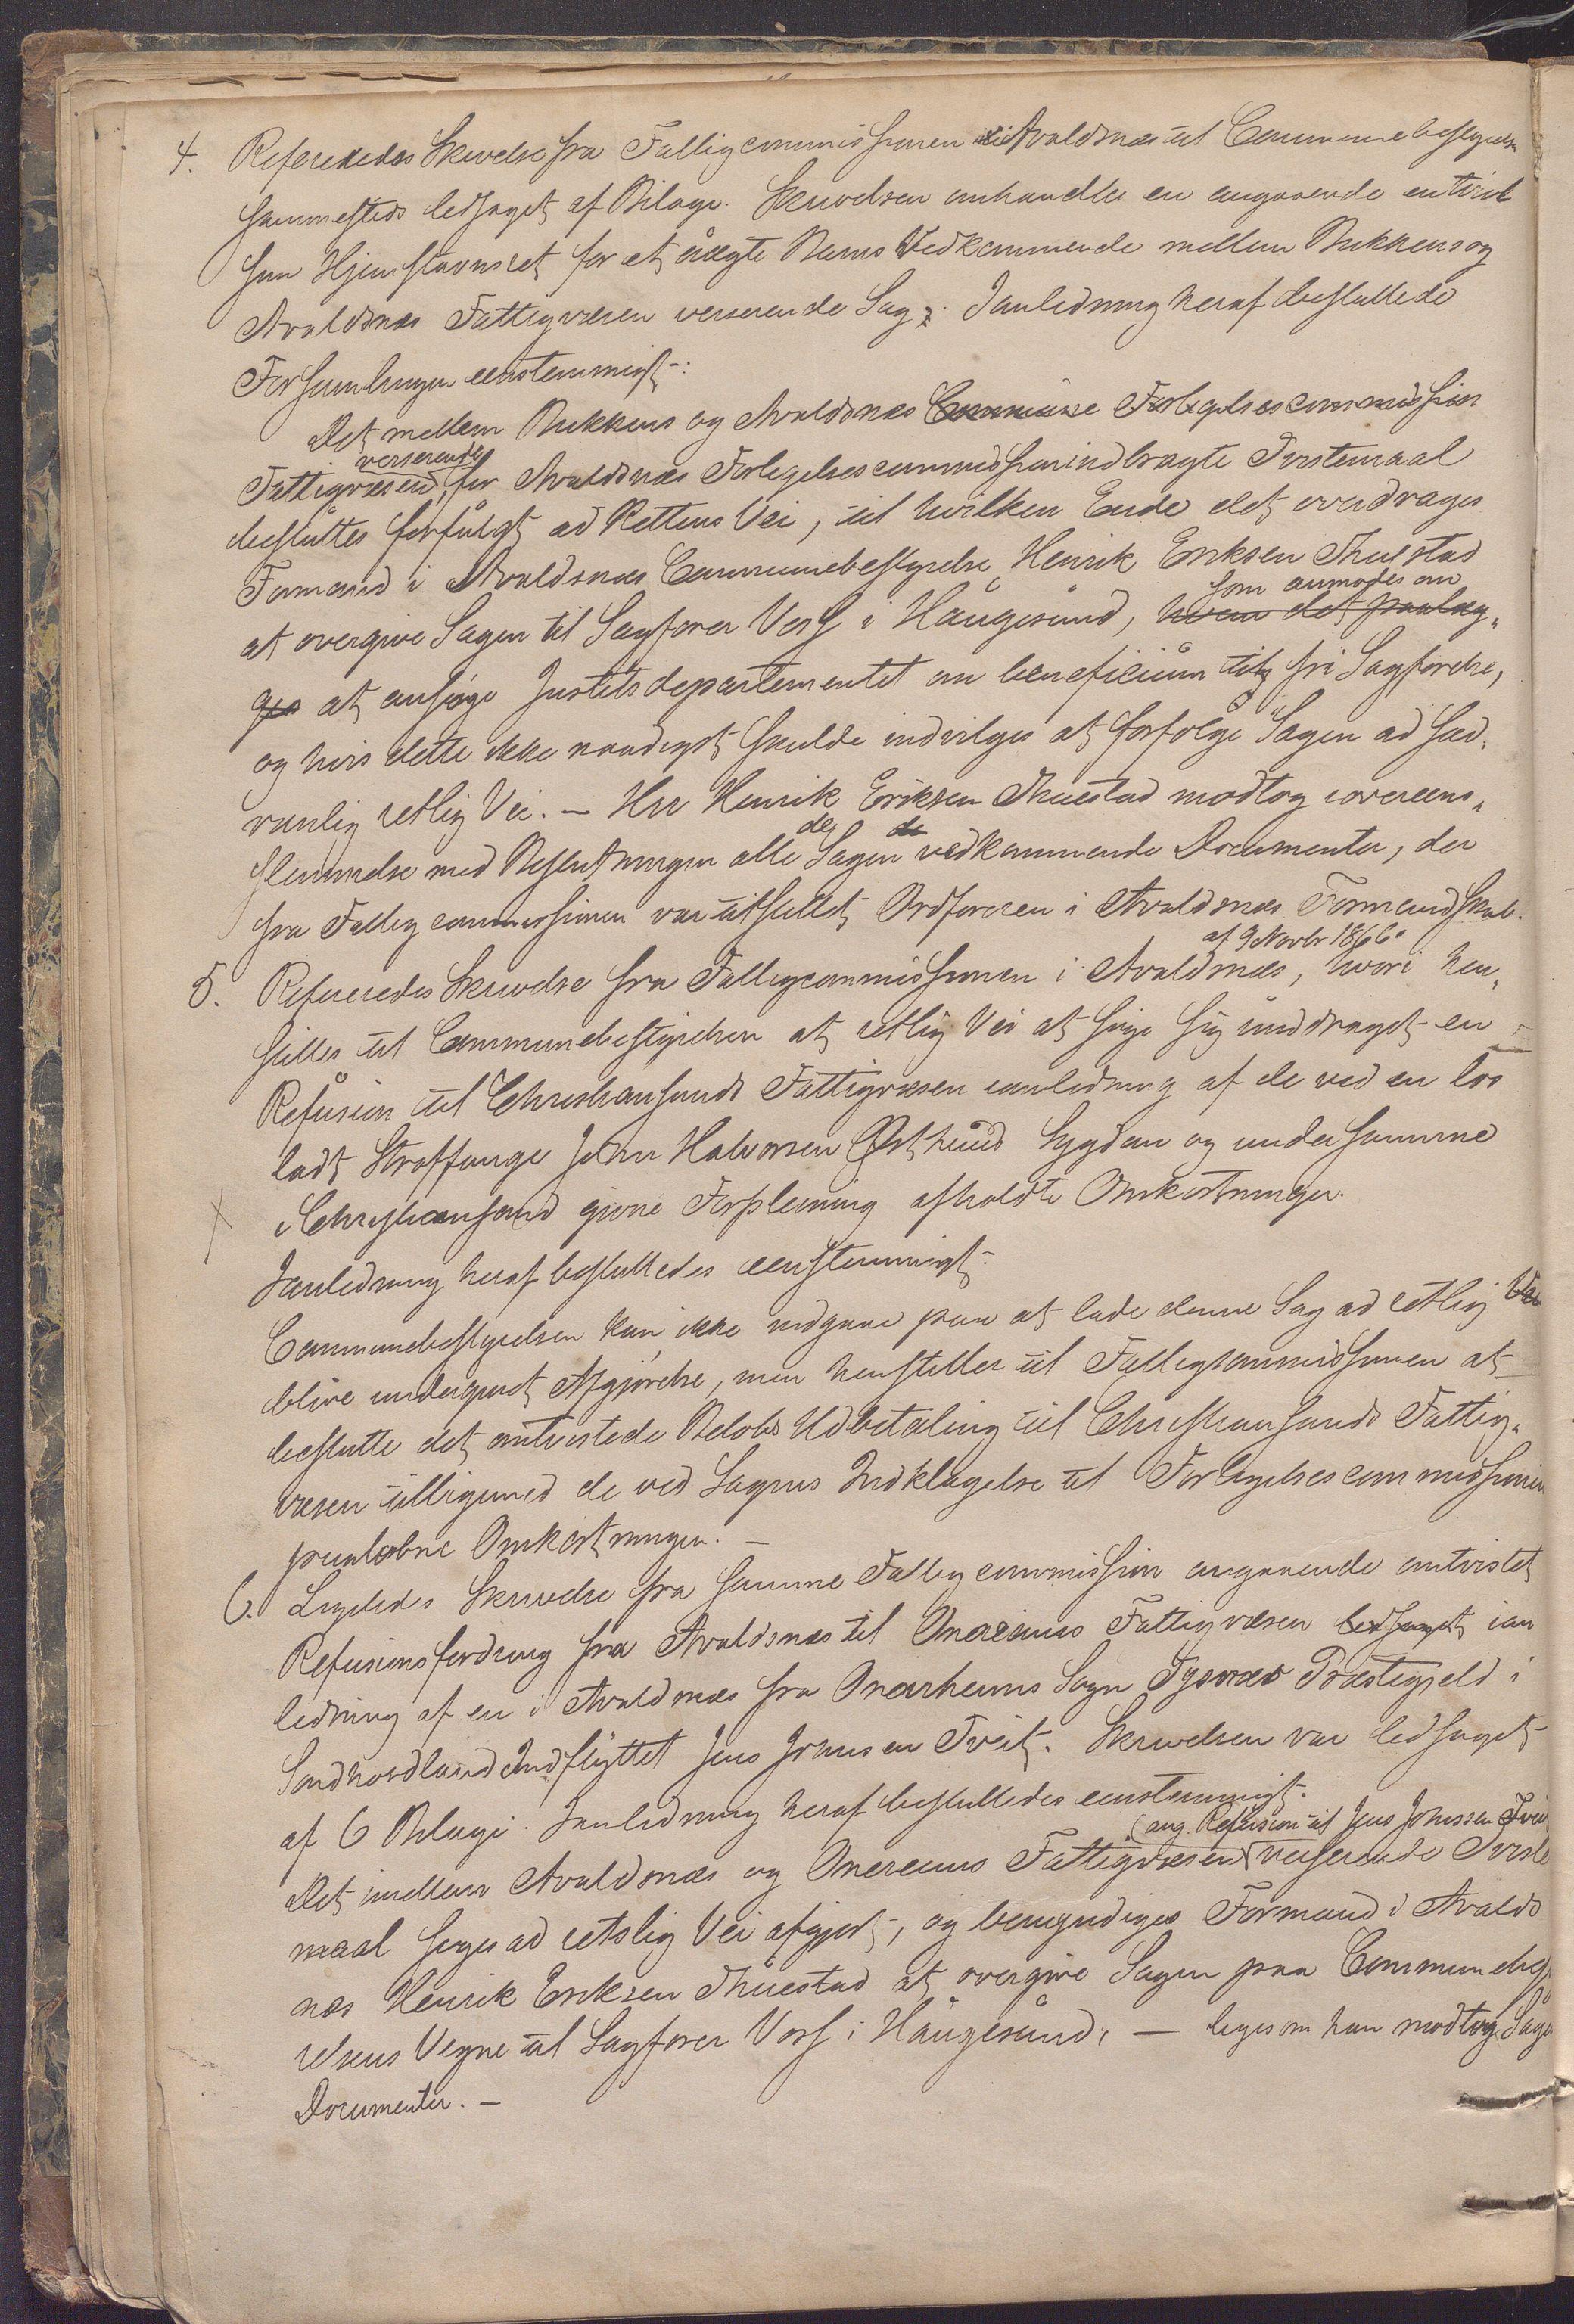 4. Refereredes Skrivelse fra Fattigcommissionen i Avaldsnæs til Communebestyrelsen
sammesteds ledsaget af Bilage. Skrivelsen omhandler en angaaende en tvivl
som Hjemstavnsret for et uægte Barns Vedkommende mellem Bukkens og
Avaldsnæs Fattigvæsen verserende Sag; Ianledning heraf besluttede
Forsamlingen eenstemmigt:
Det mellem Bukkens og Avaldsnæs Commune Forligelsescommission
verserende
Fattigvæsen, for Avaldsnæs Forligelsescommission indbragte Tvistemaal
besluttes forfulgt ad Rettens Vei, til hvilken Ende det overdrages
Formand i Avaldsnæs Communebestyrelse Henrik Eriksen Thuestad
som anmodes om
at overgive Sagen til Sagfører Vosf i Haugesund, hvem det paalæg„
ges at ansøge Justitsdepartementet om beneficium til fri Sagførelse,
og hvis dette ikke naadigst skulde indvilges at forfølge Sagen ad sæd„
vanlig retlig Vei. – Hrr Henrik Eriksen Thuestad modtog iovereens„
de de
stemmelse med Beslutningen alle Sagen vedkommende Documenter, der
fra Fattigcommissionen var tilstillet Ordføreren i Avaldsnæs Formandskab.
af 9 Novbr 1866.
5. Refereredes Skrivelse fra Fattigcommissionen i Avaldsnæs, hvori hen„
stilles til Communebestyrelsen at retlig Vei at søge sig unddraget en
Refusion til Christiansunds Fattigvæsen ianledning af de ved en løs
ladt Straffange John Halvorsen Østhuus Sygdom og under samme
i Christiansand givne Forpleining afholdte Omkostninger.
Ianledning heraf besluttedes eenstemmigt:
Communebestyrelsen kan ikke indgaae paa at lade denne Sag ad retlig Vei
blive undergivet Afgjørelse, men henstiller til Fattigcommissionen at
beslutte det omtvistede Beløbs Udbetaling til Christiansands Fattig„
væsen tilligemed de ved Sagens Indklagelse til Forligelsescommissionen
paaløbne Omkostninger. –
6. Ligeledes Skrivelse fra samme Fattigcommission angaaende omtvistet
Refusionsfordring fra Avaldsnæs til Onareims Fattigvæsen ledsaget ian
ledning af en i Avaldsnæs fra Onarheims Sogn Tysnæs Præstegjeld i
Søndhordland Indflyttet Jens Johnsen Tveit. Skrivelsen var ledsaget
af 6 Bilage. Ianledning heraf besluttedes eenstemmigt:
(ang. Refusion til Jens Johnssen Tveit
Det imellem Avaldsnæs og Onereims Fattigvæsen verserende Tviste
maal søges ad retslig Vei afgjort, og bemyndiges Formand i Avalds
næs Henrik Eriksen Thuestad at overgive Sagen paa Communebesty
relsens Vegne til Sagfører Vosf i Haugesund, – ligesom han modtog Sagens
Documenter. –